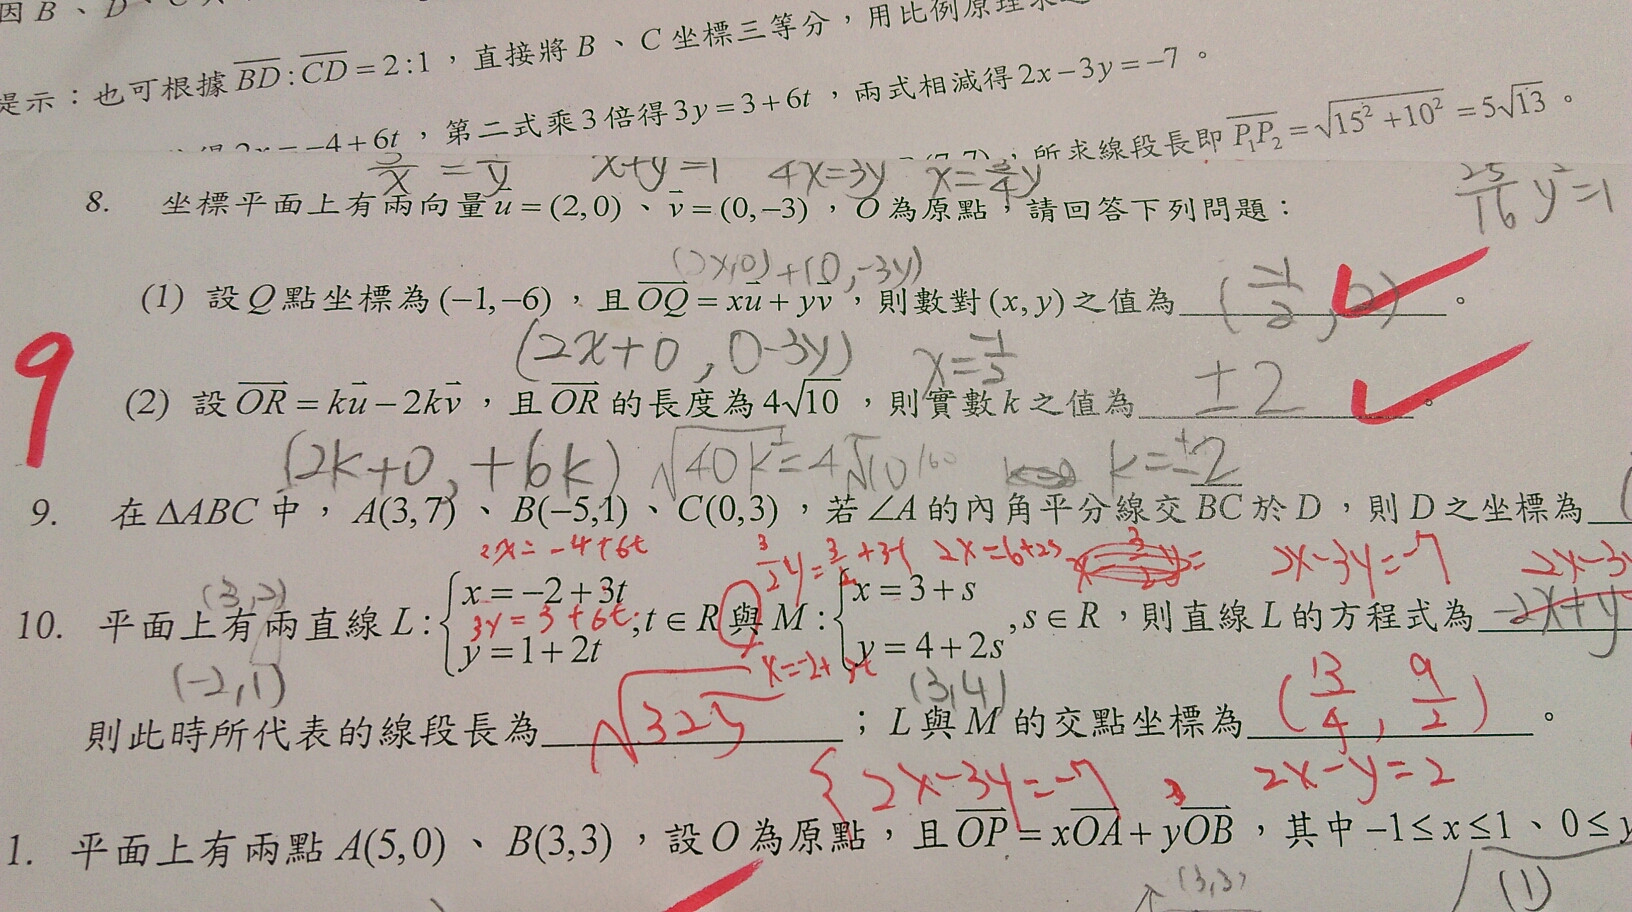 因 B、D、C
提示：也可根據 BD : CD = 2:1，直接將 B、C 坐標三等分，用比例原理求
2x = −4+6t，第二式乘3倍得 3y = 3+6t，兩式相減得 2x−3y = −7。
(7,7)，所求線段長即 P₁P₂ = √(15² +10²) = 5√13。
x+y=1 4x=3y x=3/4y
25/16 y²=1
8. 坐標平面上有兩向量 u = (2,0)、v = (0,−3)，O 為原點，請回答下列問題：
(2x,0)+(0,-3y)
(1) 設 Q 點坐標為 (−1,−6)，且 OQ = xu + yv，則數對 (x, y) 之值為 (-1/2, 2)。
(2x+0, 0-3y) x=-1/2
9
(2) 設 OR = ku − 2kv，且 OR 的長度為 4√10，則實數 k 之值為 ±2。
(2k+0, +6k) √40k² = 4√10 160 k=±2
9. 在 ΔABC 中，A(3,7)、B(−5,1)、C(0,3)，若 ∠A 的內角平分線交 BC 於 D，則 D 之坐標為
2x=-4+6t 3/2y=3/2+3t 2x=6+2s 2x-3y=-7 2x-3y
(3,2)
10. 平面上有兩直線 L : { x = −2+3t y = 1+2t ; t ∈ R 與 M : { x = 3+s y = 4+2s , s ∈ R，則直線 L 的方程式為 -2x+y
3y=3+6t
(-2,1) x=-2+3t (3,4)
則此時所代表的線段長為 √325；L 與 M 的交點坐標為 (13/4, 9/2)。
{ 2x-3y=-7 2x-y=2
1. 平面上有兩點 A(5,0)、B(3,3)，設 O 為原點，且 OP = xOA + yOB，其中 −1 ≤ x ≤ 1、0 ≤ y
(3,3) (1)